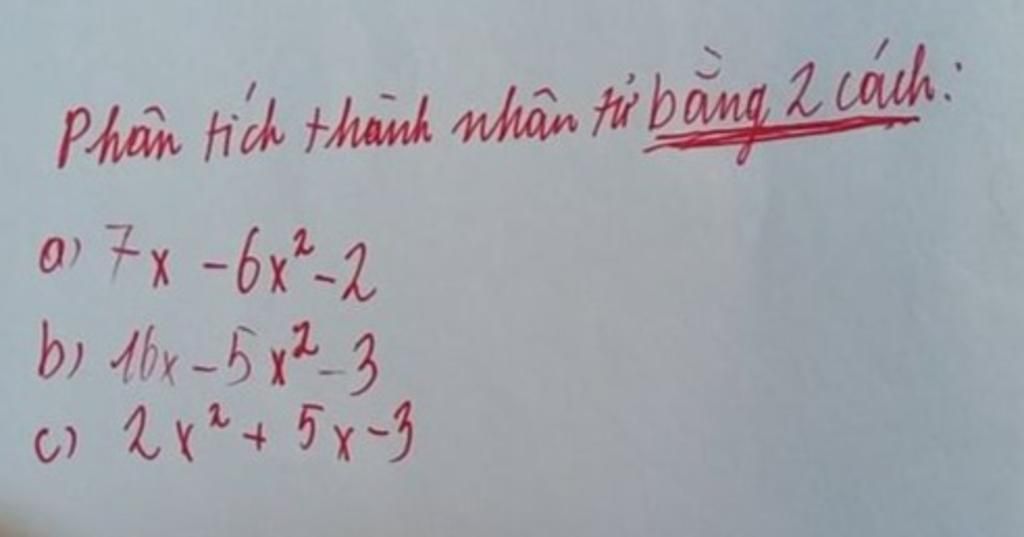 Phân tích thành nhân tử bằng 2 cách:
a) 7x - 6x² - 2
b) 16x - 5x² - 3
c) 2x² + 5x - 3